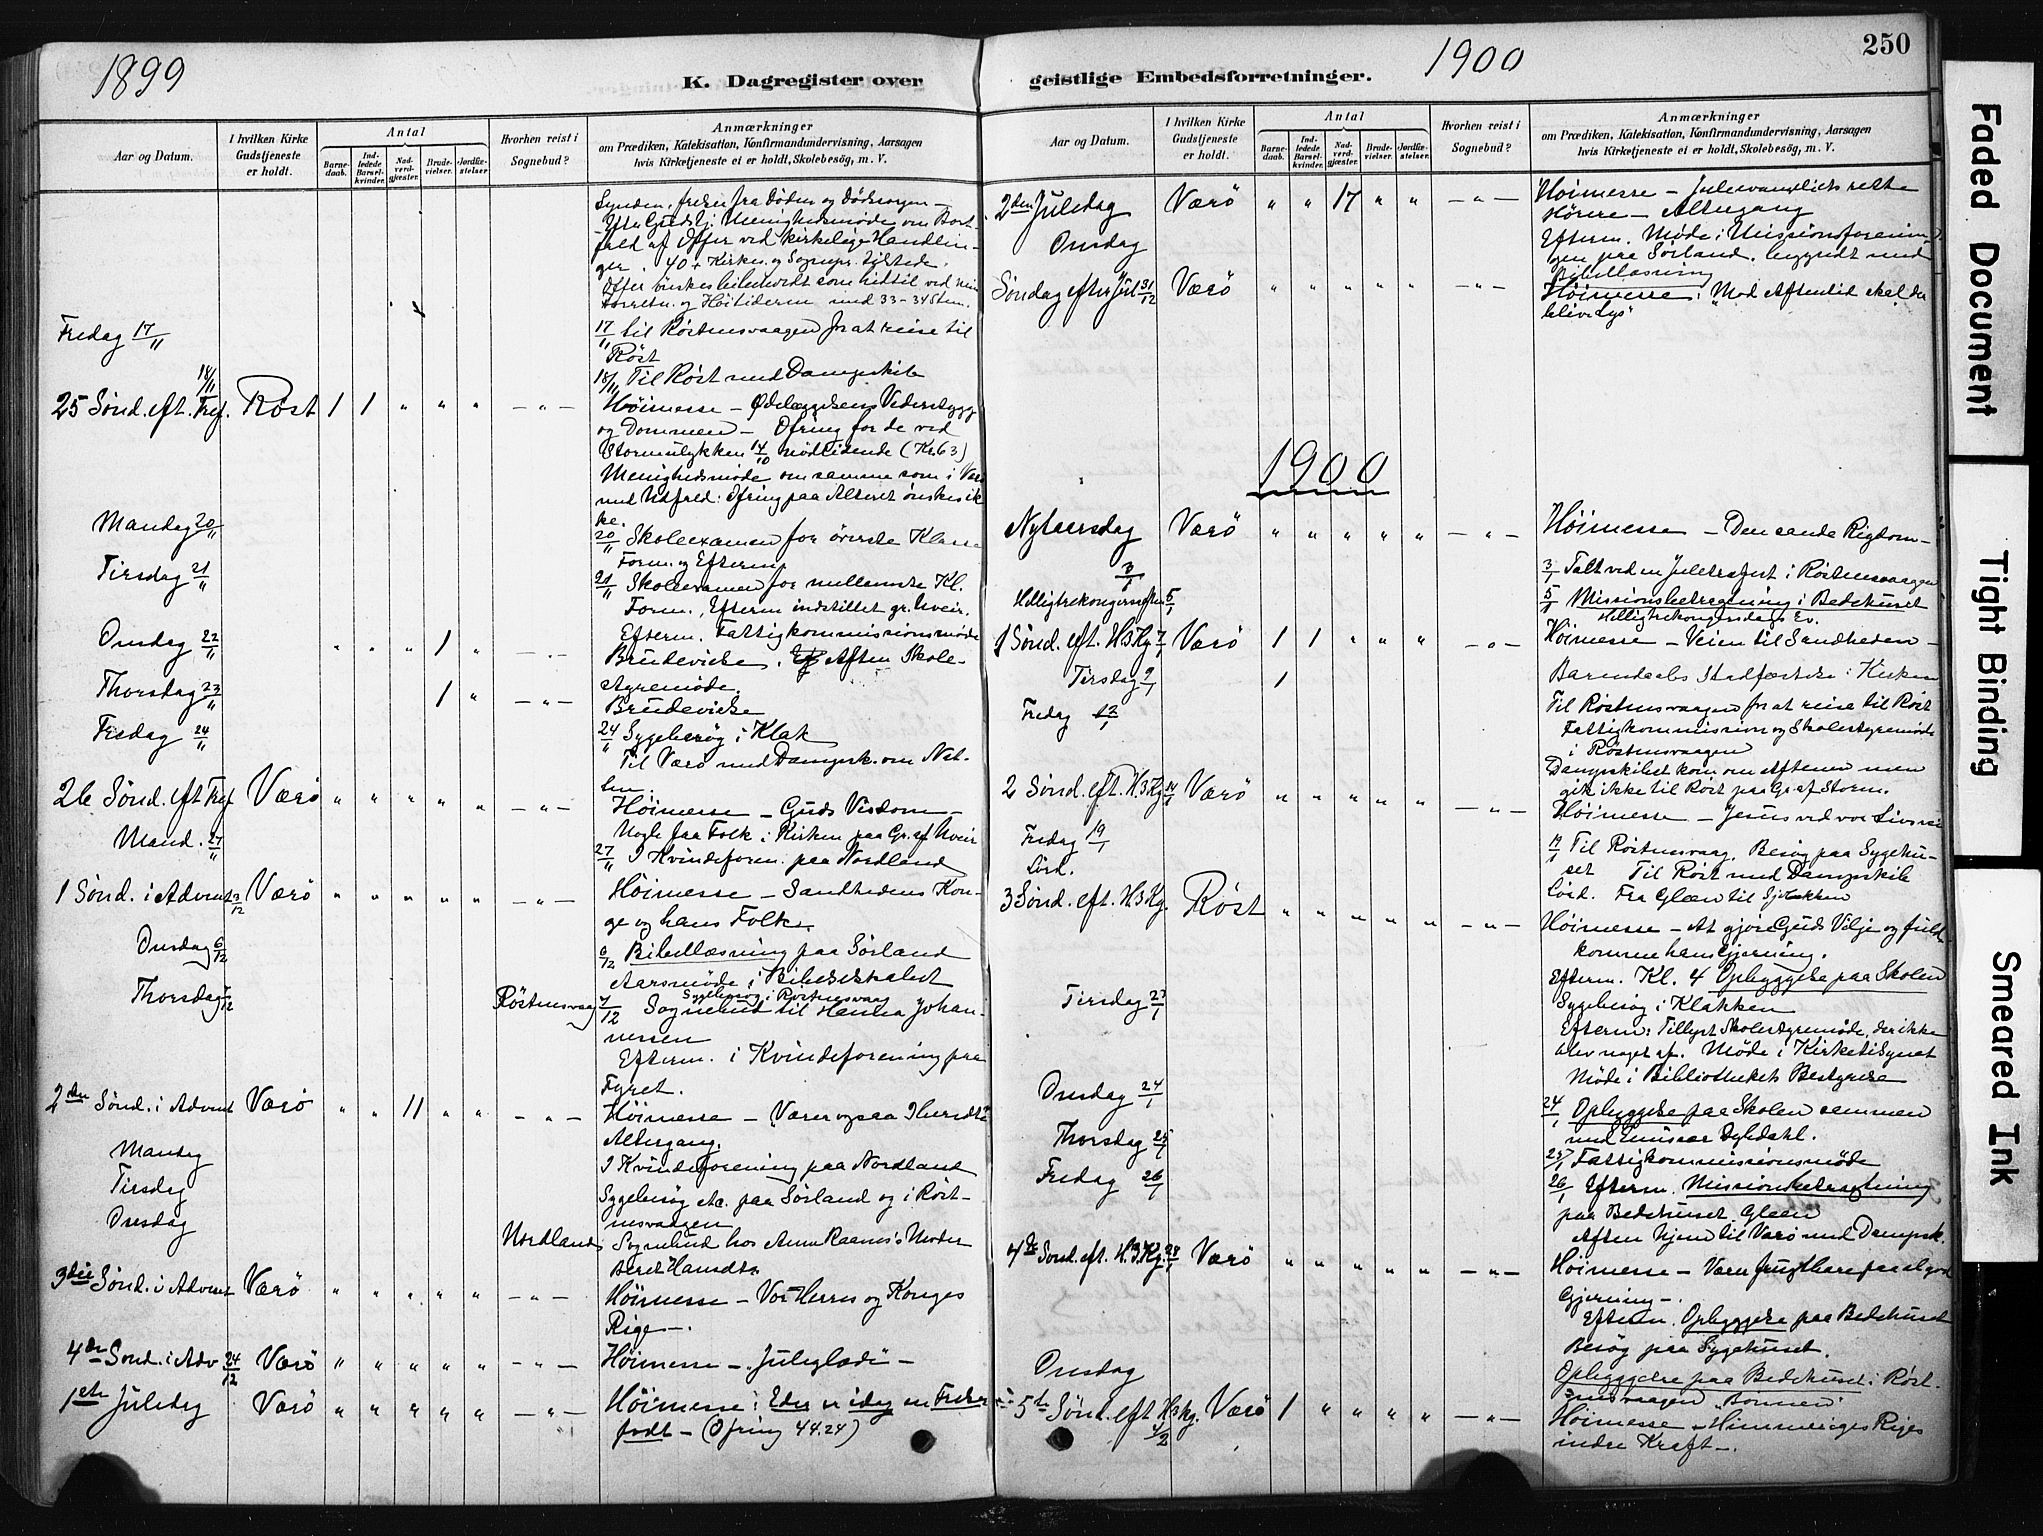 1899
K. Dagregister over
Aar og Datum.
I hvilken Kirke Gudstjeneste er holdt.
Antal
Barnedaab.
Indledede Barselkvinder.
Nadverdgjæster.
Brudevielser.
Jordfæstelser
Hvorhen reist i Sognebud?
Anmærkninger
om Prædiken, Katekisation, Konfirmandundervisning, Aarsagen
hvis Kirketjeneste ei er holdt, Skolebesøg, m. V.
Synden, frelse fra Døden og Dødssorgen –
Efter Gudstj. Menighedsmøde om Bort-
fald af Offer ved kirkelige Handlin-
ger. 40 + Kirkes. og Sognepr. tilstede.
Offer ønskes bibeholdt som hidtil ved
Forretn. og Høitiderne med 33–34 Stem.
Fredag 17/11
17/11 til Røstnesvaagen for at reise til
Røst
18/11
18/11 Til Røst med Dampskib
25 Sønd. eft. Tref. Røst 1 1 " " " – " – Høimesse – Ødelæggelsens Vederstygg
og Dommen – Ofring for de ved
Stormulykken 14/10 nødlidende (Kr. 63)
Menighedsmøde om samme som i Værø
med Udfald: Ofring paa Alteret ønskes ik
ke.
Mandag 20/11
20/11 Skoleexamen for øverste Klasse
Form. og Efterm.
Tirsdag 21/11
21/11 Skoleexamen for mellemste Kl.
Form., Efterm indstillet gr. Uveir.
Efterm. Fattigkommissionsmøde
Onsdag 22/11 " " " 1 " – " – Brudevielse. Aften Skole-
styremøde.
Thorsdag 23/11 1 " – " – Brudevielse
Fredag 24/11
24/11 Sygebesøg i Klak
Til Værø med Dampsk. om Nat-
ten.
26 Sønd. eft Tref Værø " " " " " – " – Høimesse – Guds Visdom –
Nogle faa Folk i Kirken paa Gr. af Uveir
Mand. 27/11
27/11 I Kvindeforen. paa Nordland
1 Sønd. i Advent 3/12 Værø " " " " " – " – Høimesse – Sandhedens Kon-
ge og hans Folk.
Onsdag 6/12
6/12 Bibellæsning paa Sørland
Aarsmøde i Bibelselskabet
Sygebesøg i Røstnesvaag
Thorsdag 7/12 Røstnesvaag 7/12 Sognebud til Johan-
nessen
Efterm. i Kvindeforening paa
Fyret.
2den Sønd. i Advent Værø " " 11 " " – " – Høimesse – Værer ogsaa I beredte
Altergang.
Mandag
I Kvindeforening paa Nordland
Tirsdag
Sygebesøg etc. paa Sørland og i Røst-
nesvaagen
Onsdag Nordlands Sognebud hos Anna Raanes's Moder
Beret Hansdtr
3die Sønd. i Advent Værø " " " " " – " – Høimesse – Vor Herres og Konges
Rige –.
4de Sønd. i Adv. 24/12 Værø " " " " " – " – Høimesse – "Juleglæde" –
1ste Juledag Værø " " " " " – " – Høimesse: Eder er idag en Frelser
født – (Ofring 44.24)
1900
250
geistlige Embedsforretninger.
Aar og Datum.
I hvilken Kirke Gudstjeneste er holdt.
Antal
Barnedaab.
Indledede Barselkvinder.
Nadverdgjæster.
Brudevielser.
Jordfæstelser.
Hvorhen reist i Sognebud?
Anmærkninger
om Prædiken, Katekisation, Konfirmandundervisning, Aarsagen
hvis Kirketjeneste ei er holdt, Skolebesøg, m. V.
2den Juledag Værø " " 17 " " – " – Høimesse – Juleevangeliets rette
Hørere – Altergang
Onsdag
Efterm. Møde i Missionsforenin-
gen paa Sørland, begyndt med
Bibellæsning
Søndag efter Jul 31/12 Værø " " " " " – " – Høimesse: "Mod Aftentid skal det
blive Lys"
1900
Nytaarsdag Værø " " " " " – " – Høimesse – Den sande Rigdom –
3/1
3/1 Talt ved en Juletræfest i Røstnesvaagen
Helligtrekongersaften 5/1
5/1 Missionsbetragtning i Bedehuset
Helligtrekongersdags Ev.
1 Sønd. eft. H3Kg 7/1 Værø 1 1 " " " – " – Høimesse – Veien til Sandheden –
Tirsdag 9/1 1 Barnedaabs Stadfæstelse i Kirken
Fredag 12/1
Til Røstnesvaagen for at reise til Røst
Fattigkommission og Skolestyremøde
i Røstnesvaagen
Dampskibet kom om Aftenen men
gik ikke til Røst paa Gr. af Storm.
2 Sønd. eft. H3Kg 14/1 Værø " " " " " – " – Høimesse – Jesus ved vor Livsvei
Fredag 19/1
19/1 Til Røstnesvaag. Besøg paa Sygehu-
set Til Røst med Dampskib
Lørd.
Lørd. Fra Glæen til Klakken
3 Sønd. eft. H3Kg. Røst " " " " " – " – Høimesse – At gjøre Guds Vilje og fuld-
komme hans Gjerning.
Efterm. Kl. 4 Opbyggelse paa Skolen
Tirsdag 23/1
Sygebesøg i Klakken
Efterm: Tillyst Skolestyremøde, der ikke
blev noget af. Møde i Kirketilsynet
Møde i Bibliothekets Bestyrelse
Onsdag 24/1
24/1 Opbyggelse paa Skolen sammen
med Emissær Dybdahl.
Thorsdag 25/1
25/1 Fattigkommissionsmøde
Fredag 26/1
26/1 Efterm. Missionsbetragtning
paa Bedehuset Glæen
Aften hjem til Værø med Dampsk.
4de Sønd. eft. H.3.Kg. 28/1 Værø " " " " " – " – Høimesse – Være frugtbare paa al god
Gjerning –.
Efterm. Opbyggelse paa Bedehuset
Besøg paa Sygehuset.
Onsdag
Opbyggelse paa Bedehuset i Røst-
nesvaagen "Bønnen"
5te Sønd. eft H3Kg. 4/2 Værø 1 " " " " – " – Høimesse – Himmeriges Riges
indre Kraft –.
Faded Document
Tight Binding
Smeared Ink